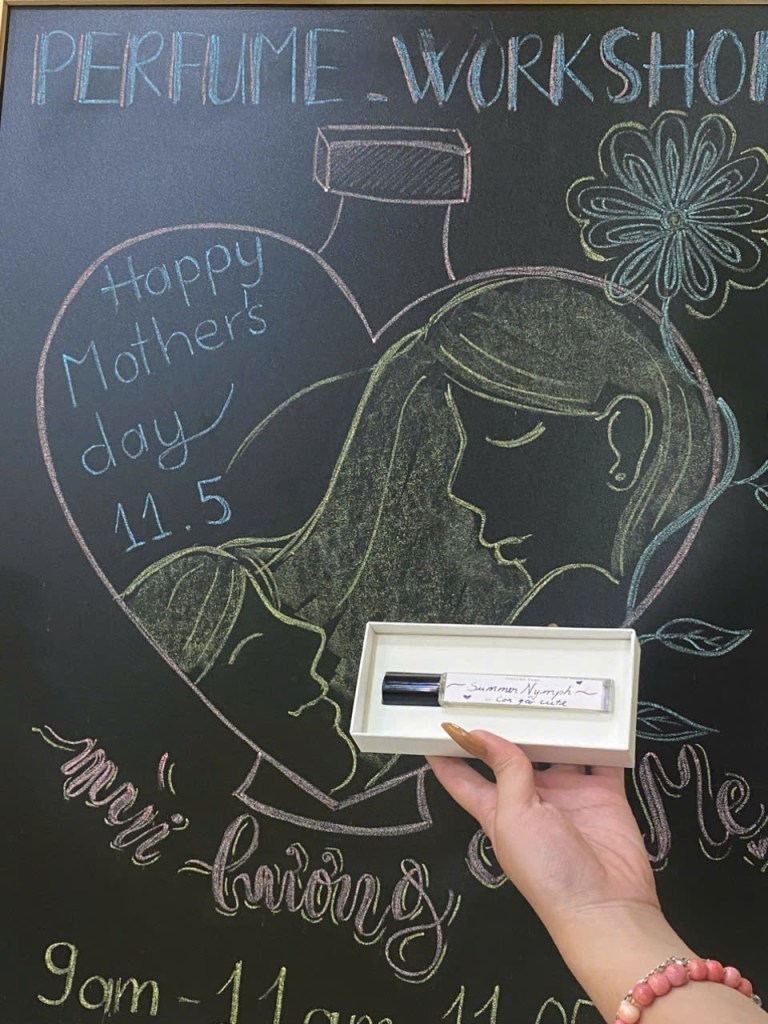 PERFUME - WORKSHO
Happy
Mother's
day
11.5
~ Summer Nymph ~
- Con gà cute
mùi hương Mẹ
9am - 11am 11.05